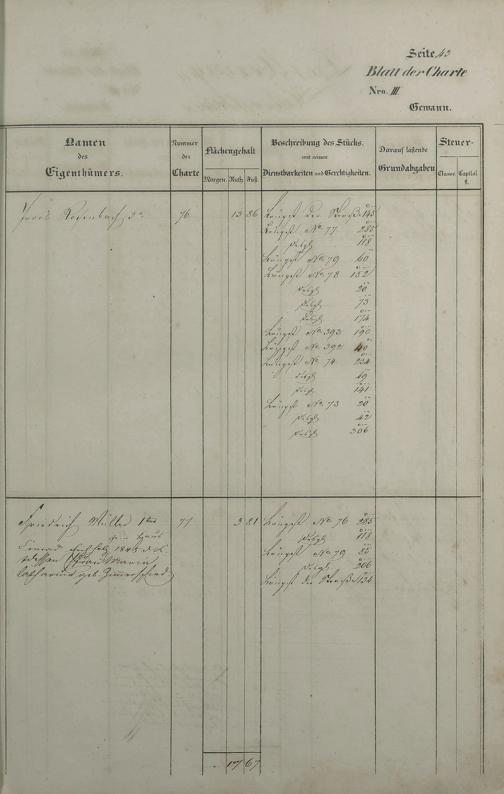 Seite 43
Blatt der Charte
Nro. III
Gewann.
Namen des Eigenthümers.
Nummer der Charte
Flächengehalt
Morgen. Ruth. Fuß.
Beschreibung des Stücks.
mit seinen
Dienstbarkeiten und Gerechtigkeiten.
Darauf lastende Grundabgaben
Steuer-
Classe Capital fl.
Rosenbach 76 13 86 Längst der Straße 145
Längst No 77 285
118
Längst No 79 60
Längst No 78 152
20
73
174
Längst No 393 190
Längst No 392 40
Längst No 74 234
69
141
Längst No 73 20
42
306
Friedrich Müller 1ter 77 3 81 Längst No 76 285
118
Conrad 1845
Längst No 79
Frau Maria
206
Catharina geb. Zimmerschied
Längst der Straße 134
17 67